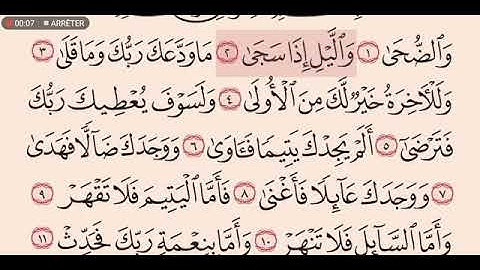 00:07 ARRÊTER
وَالضُّحَىٰ ١ وَالَّيْلِ إِذَا سَجَىٰ ٢ مَا وَدَّعَكَ رَبُّكَ وَمَا قَلَىٰ ٣
وَلَلْآخِرَةُ خَيْرٌ لَّكَ مِنَ الْأُولَىٰ ٤ وَلَسَوْفَ يُعْطِيكَ رَبُّكَ
فَتَرْضَىٰ ٥ أَلَمْ يَجِدْكَ يَتِيمًا فَـَٔاوَىٰ ٦ وَوَجَدَكَ ضَآلًّا فَهَدَىٰ
٧ وَوَجَدَكَ عَآئِلًا فَأَغْنَىٰ ٨ فَأَمَّا الْيَتِيمَ فَلَا تَقْهَرْ ٩
وَأَمَّا السَّآئِلَ فَلَا تَنْهَرْ ١٠ وَأَمَّا بِنِعْمَةِ رَبِّكَ فَحَدِّثْ ١١